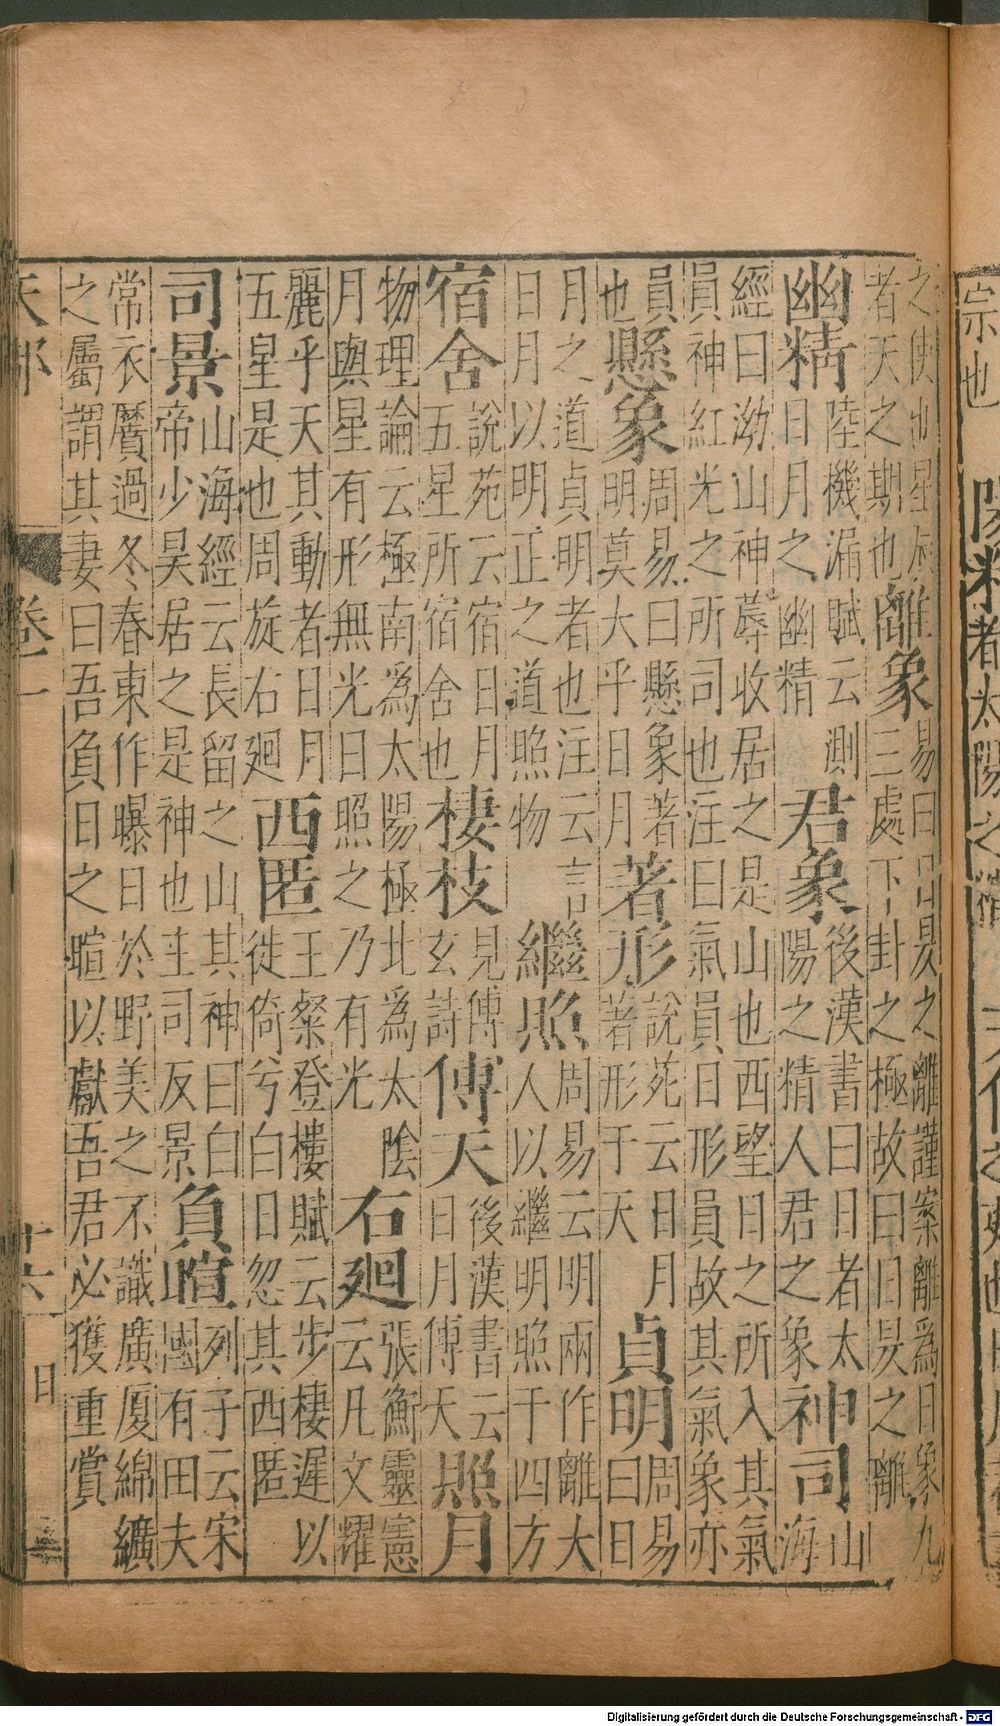 宗也 陽精者太陽之
之使也星辰
者天之期也
離象
易曰日昃之離謹案離為日象九
三處下卦之極故曰日昃之離
幽精
陸機漏賦云測
日月之幽精
君象
後漢書曰日者太
陽之精人君之象
神司
山
海
經曰泑山神蓐收居之是山也西望日之所入其氣
員神紅光之所司也注曰氣員日形員故其氣象亦
員
也
懸象
周易曰懸象著
明莫大乎日月
著形
說苑云日月
著形于天
貞明
周易
曰日
月之道貞明者也注云言
日月以明正之道照物
繼照
周易云明兩作離大
人以繼明照于四方
宿舍
說苑云宿日月
五星所宿舍也
棲枝
見傅
玄詩
傅天
後漢書云
日月傅天
照月
物理論云極南為太陽極北為太陰
月與星有形無光日照之乃有光
右廻
張衡靈憲
云凡文耀
麗乎天其動者日月
五星是也周旋右廻
西匿
王粲登樓賦云步棲遲以
徙倚兮白日忽其西匿
司景
山海經云長留之山其神曰白
帝少昊居之是神也主司反景
負暄
列子云宋
國有田夫
常衣黂過冬春東作曝日於野美之不識廣厦綿纊
之屬謂其妻曰吾負日之暄以獻吾君必獲重賞
天部 卷一 十六 日
Digitalisierung gefördert durch die Deutsche Forschungsgemeinschaft - DFG